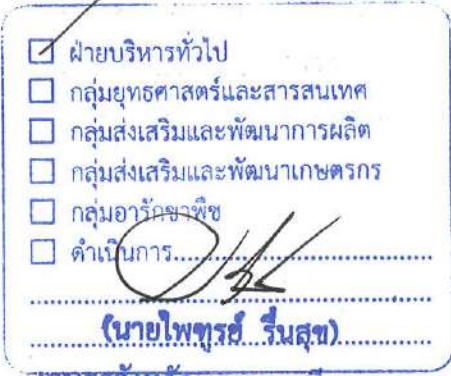 ☑ ฝ่ายบริหารทั่วไป
☐ กลุ่มยุทธศาสตร์และสารสนเทศ
☐ กลุ่มส่งเสริมและพัฒนาการผลิต
☐ กลุ่มส่งเสริมและพัฒนาเกษตรกร
☐ กลุ่มอารักขาพืช
☐ ดำเนินการ
(นายไพฑูรย์ รื่นสุข)